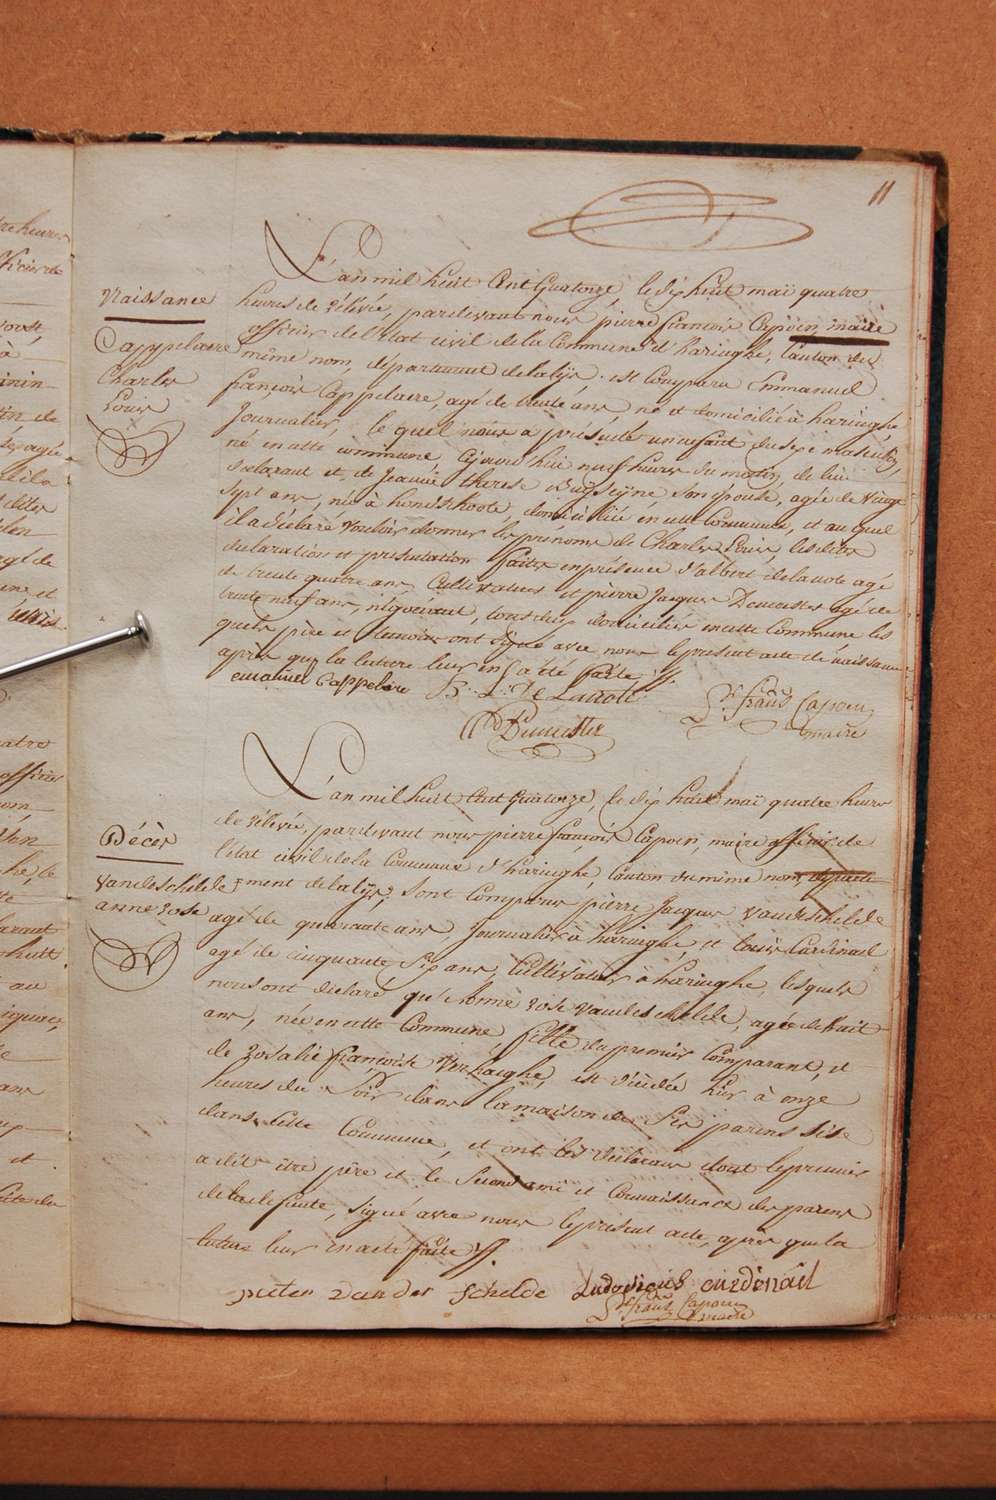 11
Naissance
Cappelaere
Charles
Louis
L'an mil huit cent quatorze, le dix huit maï quatre
heures de rélévée, pardevant nous pierre françois Capoen, maire
officier de l'état civil de la Commune d'haringhe, Canton du
même nom, département de la lÿs, est comparu Emmanuel
françois Cappelaere, agé de trente ans né et domicilié à haringhe
Journalier, le quel nous a présenté un enfant du sexe masculin,
né en cette commune, cejourd'hui neuf heures du matin, de lui
déclarant et de Jeanne therese Buÿsseÿne son épouse, agée de vingt
sept ans, née à hondschoote, domiciliée en cette Commune, et au quel
il a déclaré vouloir donner les prenoms de Charles Louis, lesdites
declaration et presentation faites en présence d'albert delanote agé
de trente quatre ans, Cultivateur et pierre Jacques Demeester agé de
trente neuf ans, négociant, tous deux domiciliés en cette Commune les
quels père et temoins ont signé avec nous le present acte de naissance
après que la lecture leur en a été faite.
emanuel Cappelaere B. L. De Lanote
Demeester
Pre frans Capoen
maire
Décès
Vandeschelde
anne rose
L'an mil huit cent quatorze, le dix huit maï quatre heures
de rélévée, pardevant nous pierre françois Capoen, maire officier de
l'état civil de la Commune d'haringhe, Canton du même nom, departe
=ment de la lÿs, sont comparus pierre Jacques Vandeschelde
agé de quarante ans, Journalier à haringhe, et Louis Cardinael
agé de cinquante six ans, Cultivateur à haringhe, lesquels
nous ont declaré que Anne rose Vandeschelde, agée de huit
ans, née en cette Commune, fille du premier Comparant, et
de rosalie françoise Verhaeghe, est décédée hier à onze
heures du Soir dans la maison de ses parens sise
dans cette Commune, et ont les déclarans dont le premier
a dit être père et le Second ami et Connaissance des parens
de la defunte, signé avec nous le present acte, après que la
lecture leur en a été faite.
pieter van der schelde Ludovicus cardenael
Pre frans Capoen
maire